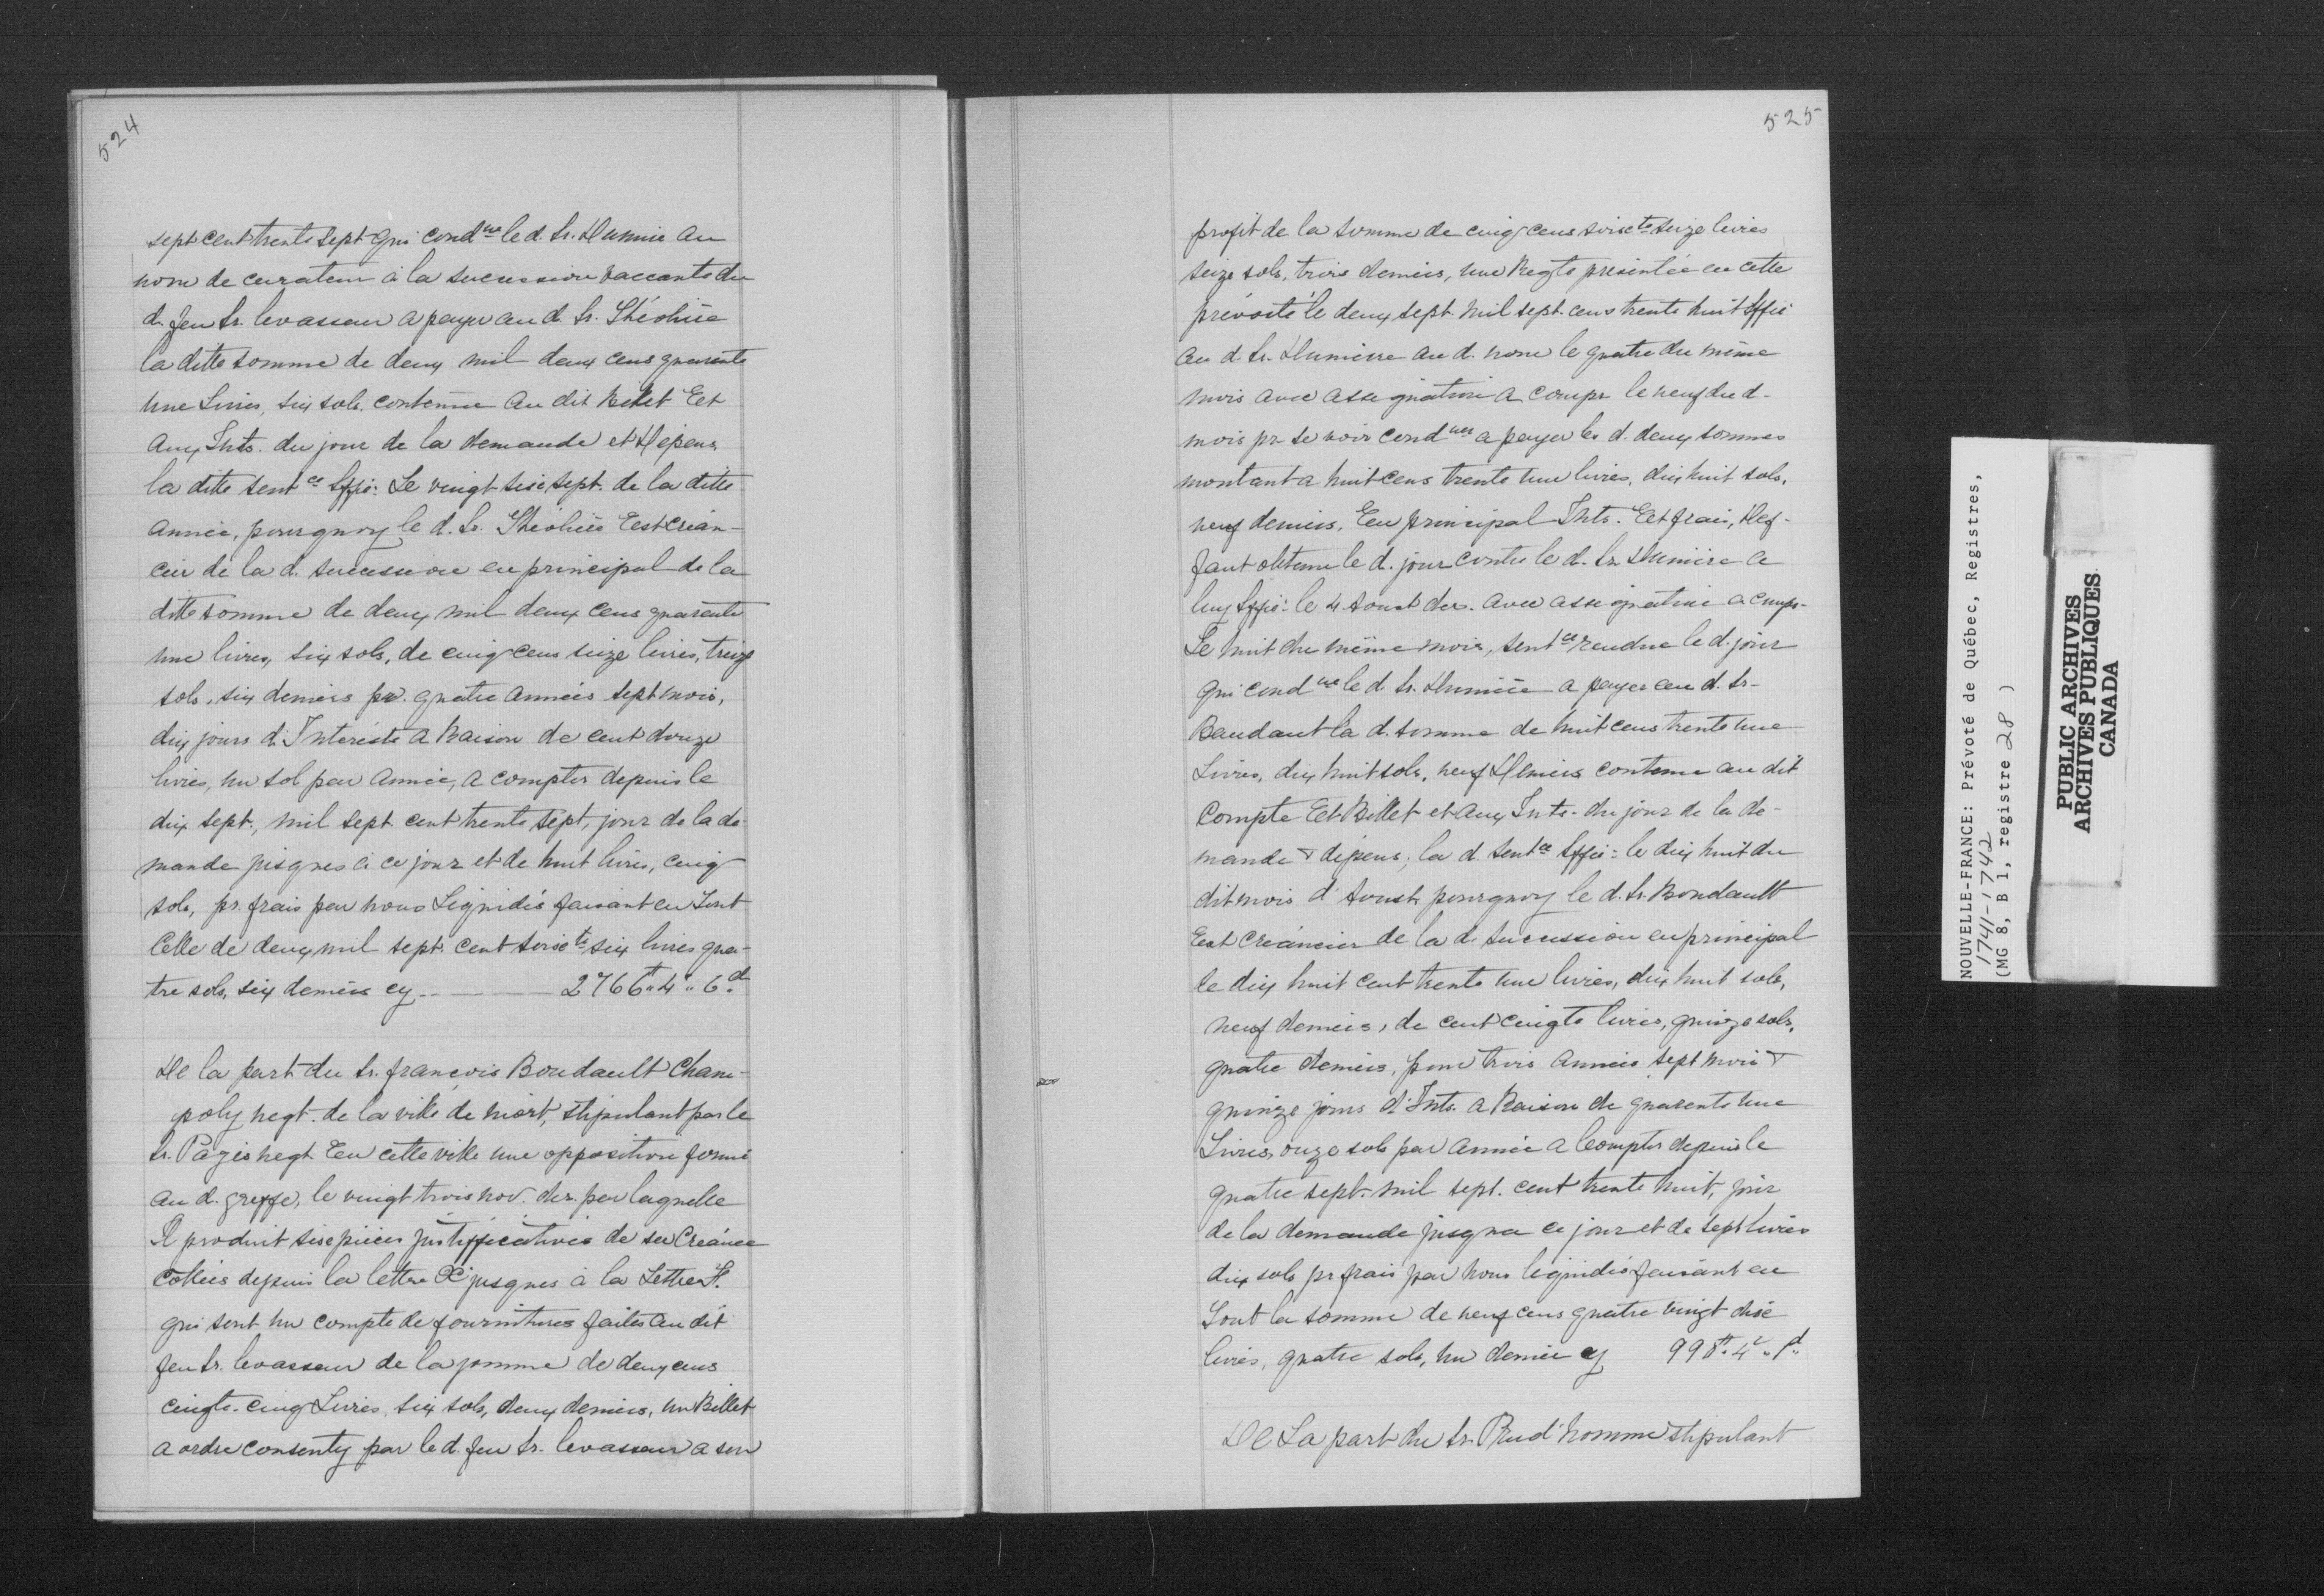 524
sept cent trente sept qui cond^ne le d. Sr. Dumie au
nom de curateur à la sucession vaccante du
d. feu Sr. levasseur a payer au d. Sr. Théolière
la ditte somme de deux mil deux cens quarante
une Livres, six sols, contenue au dit Billet Et
aux Ints. du jour de la demande et Dépens
la ditte sent^ce Sffié: Le vingt sise sept. de la ditte
année, pourquoy le d. Sr. Théolière Est créan-
cier de la d. sucession en principal de la
ditte somme de deux mil deux cens quarante
une livres, six sols, de cinq cens seize livres, treize
sols, six deniers pr. quatre années sept mois,
dix jours d'Interests a Raison de cent douze
livres, un sol par année, a compter depuis le
dix sept., mil sept. cent trente sept, jour de la de-
mande jusques à ce jour et de huit livres, cinq
sols, pr. frais par nous Liquidés faisant en Tout
Celle de deux mil sept. cent soixte six livres qua-
tre sols, six deniers cy 2766^tt "4" 6^d.
De la part du Sr. francois Boudault Cham-
poly negt. de la ville de niort, stipulant par le
Sr. Pagés negt. En cette ville une opposition formé
au d. greffe, le vingt trois nov. der. par laquelle
Il produit sise piéces justifficatives de sa Créance
cottées depuis la lettre X jusques à la Lettre
qui sont un compte de fournitures faites au dit
feu Sr. levasseur de la somme de deux cens
cinqte. cinq Livres, six sols, deux deniers, un Billet
a ordre consenty par le d. feu Sr. levasseur a son
525
profit de la somme de cinq cens soixte seize livres
seize sols, trois deniers, une Reqte présentée en cette
prévosté le deux sept. mil sept. cens trente huit Sffié
au d. Sr. Dumiere au d. nom le quatre du même
mois avec assignation a compr. le neuf du d.
mois pr. se voir cond^ner a payer les d. deux sommes
montant a huit cens trente une livres, dix huit sols,
neuf deniers, En principal Ints. Et frais, Def-
faut obtenu le d. jour contre le d. Sr. Dumière a
luy Sffié: le 4 Aoust der. avec assignation a compr.
Le huit du même mois, sent^ce rendue le d. jour
qui cond^ne le d. Sr. Dumière a payer au d. Sr.
Baudault la d. somme de huit cens trente une
Livres, dix huit sols, neuf Deniers contenue au dit
Compte Et Billet et aux Ints. du jour de la de-
mande & dépens, la d. sent^ce Sffié: le dix huit du
dit mois d'Aoust pourquoy le d. Sr. Boudault
Est créancier de la d. sucession en principal
le dix huit cent trente une livres, dix huit sols,
neuf deniers, de cent cinqte livres, quinze sols,
quatre deniers, pour trois années sept mois &
quinze jours d'Ints. a Raison de quarente une
Livres, onze sols par année a Compter depuis le
quatre sept. mil sept. cent trente huit, jour
de la demande jusqua ce jour et de sept livres
dix sols pr. frais par nous liquidés faisant en
Tout la somme de neuf cens quatre vingt dise
livres, quatre sols, un denier cy 998^tt. 4^s. 1^d.
De La part du Sr. Prud'homme stipulant
NOUVELLE-FRANCE: Prévoté de Québec, Registres,
1741-1742
(MG 8, B 1, registre 28 )
PUBLIC ARCHIVES
ARCHIVES PUBLIQUES
CANADA